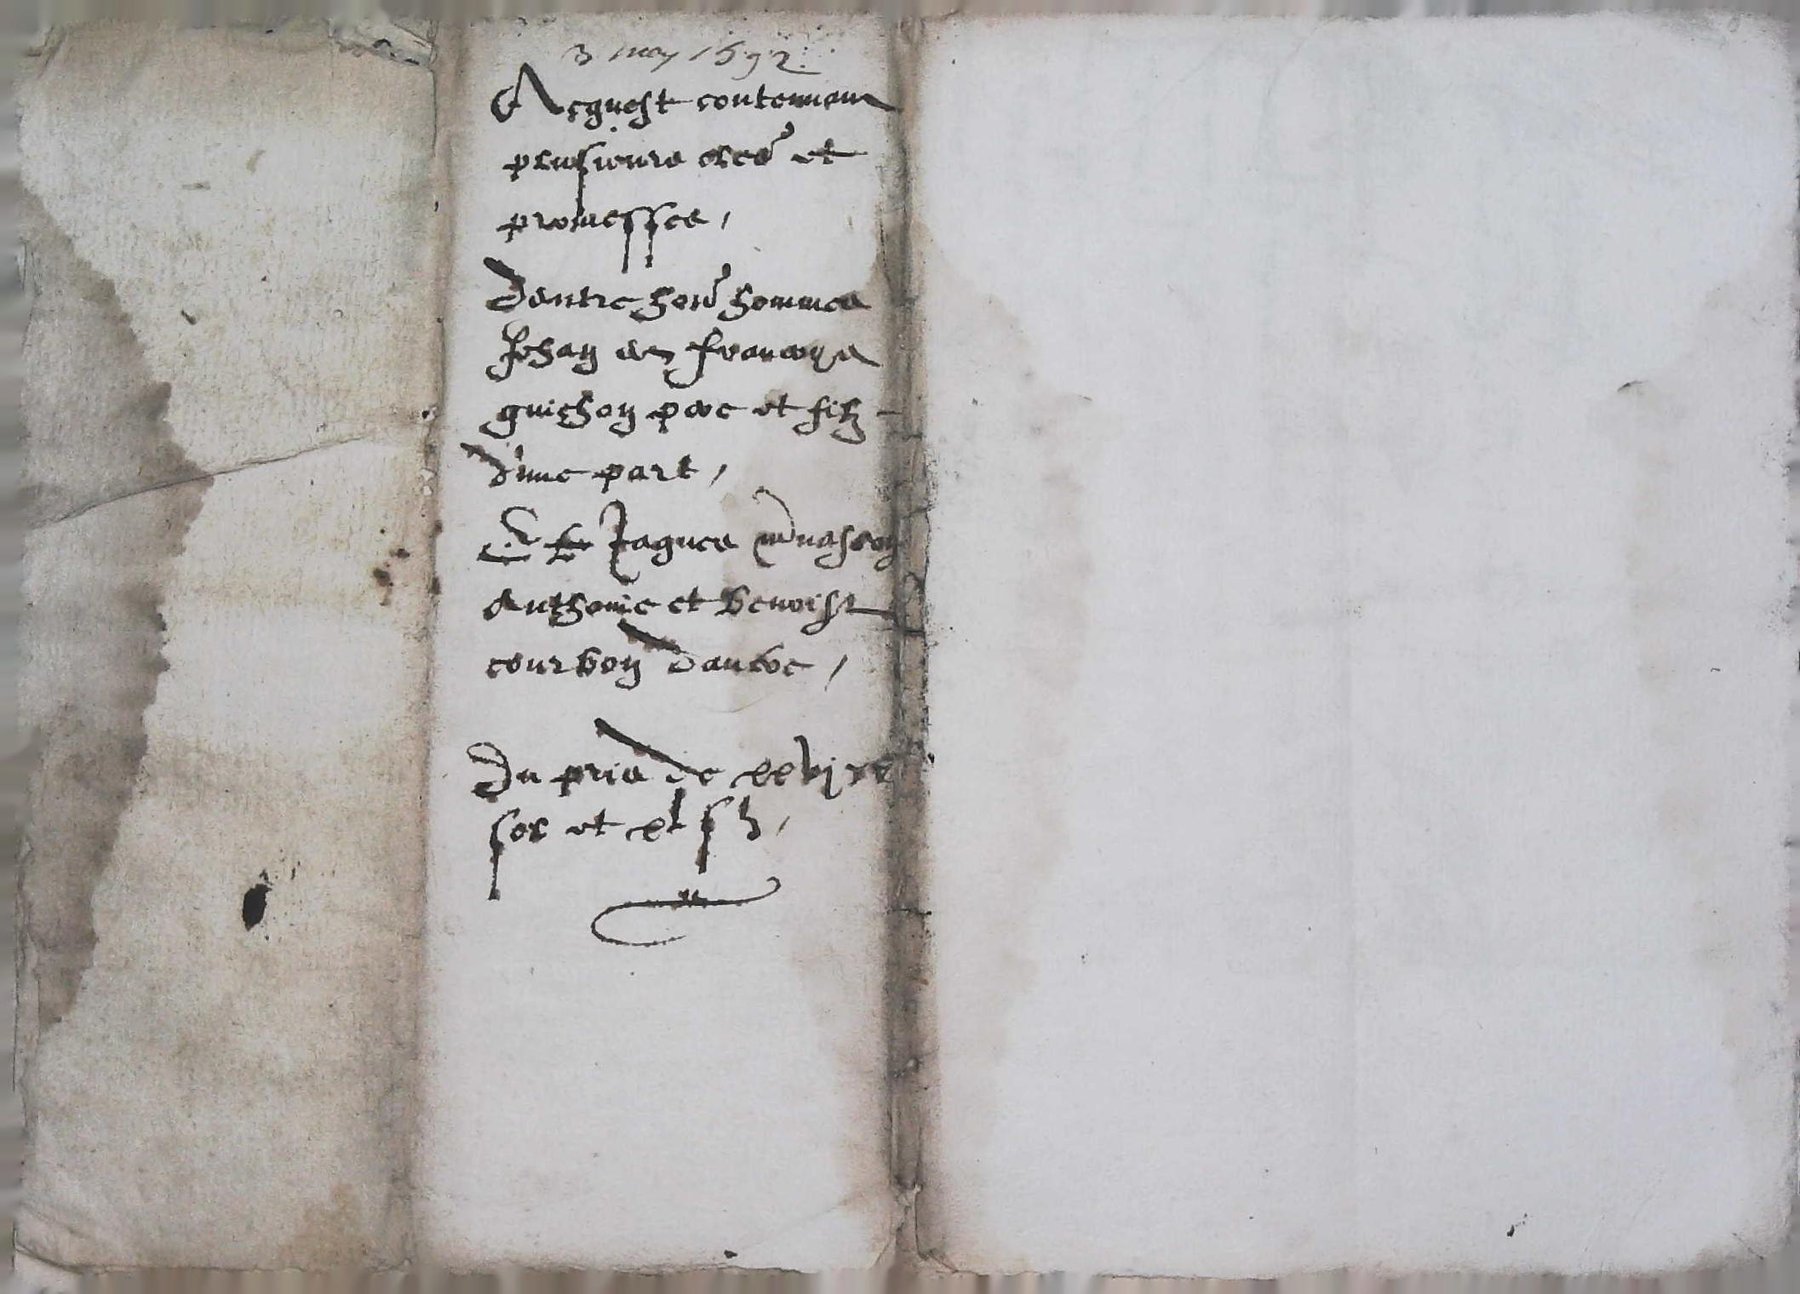 3 may 1592
Acquest contennant
plusieurs et
promesses,
Dentre hon homme
Jehan et francoys
guichon pere et filz
d'une part,
Et Jaques
Anthonie et benoist
courbon daultre,
Du pris de xxvj
sol et xl sh,